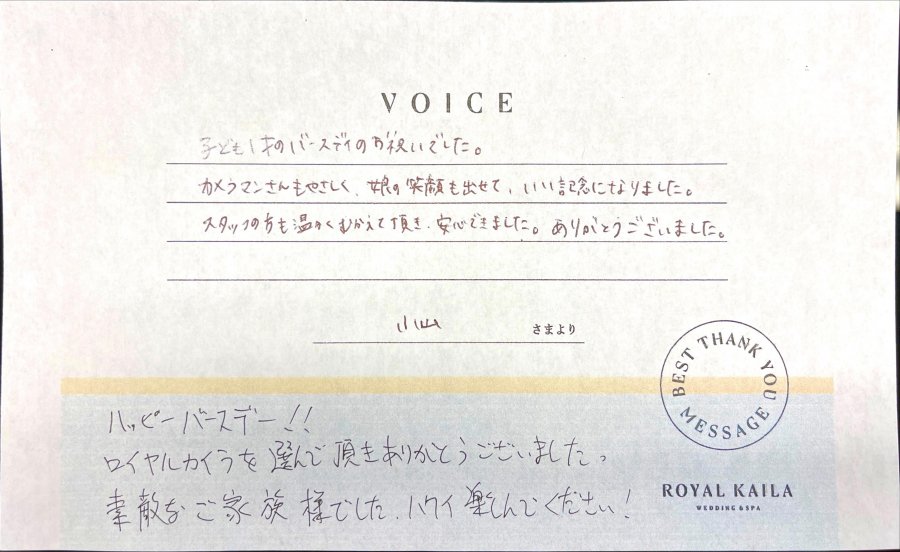 VOICE
子ども1才のバースデイのお祝いでした。
カメラマンさんもやさしく、娘の笑顔も出せて、いい記念になりました。
スタッフの方も温かくむかえて頂き、安心できました。ありがとうございました。
小山 さまより
BEST THANK YOU MESSAGE
ハッピーバースデー!!
ロイヤルカイラを選んで頂きありがとうございました。
素敵なご家族様でした。ハワイ楽しんでください!
ROYAL KAILA
WEDDING & SPA